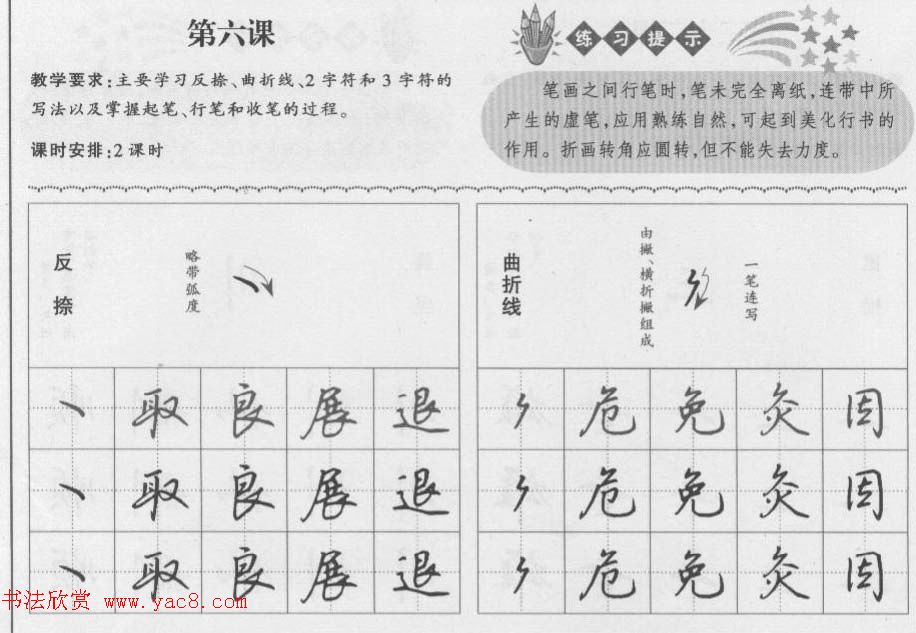 第六课
教学要求:主要学习反捺、曲折线、2字符和3字符的
写法以及掌握起笔、行笔和收笔的过程。
课时安排:2课时
练习提示
笔画之间行笔时,笔未完全离纸,连带中所
产生的虚笔,应用熟练自然,可起到美化行书的
作用。折画转角应圆转,但不能失去力度。
反捺
略带弧度
取良展退
取良展退
取良展退
曲折线
由撇、横折撇组成
一笔连写
危免灸因
危免灸因
危免灸因
书法欣赏 www.yac8.com